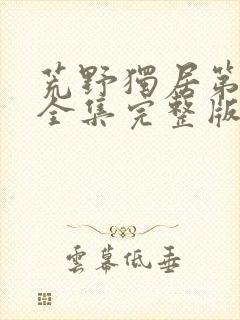 荒野獨居第
全集完整版
雲幕低垂